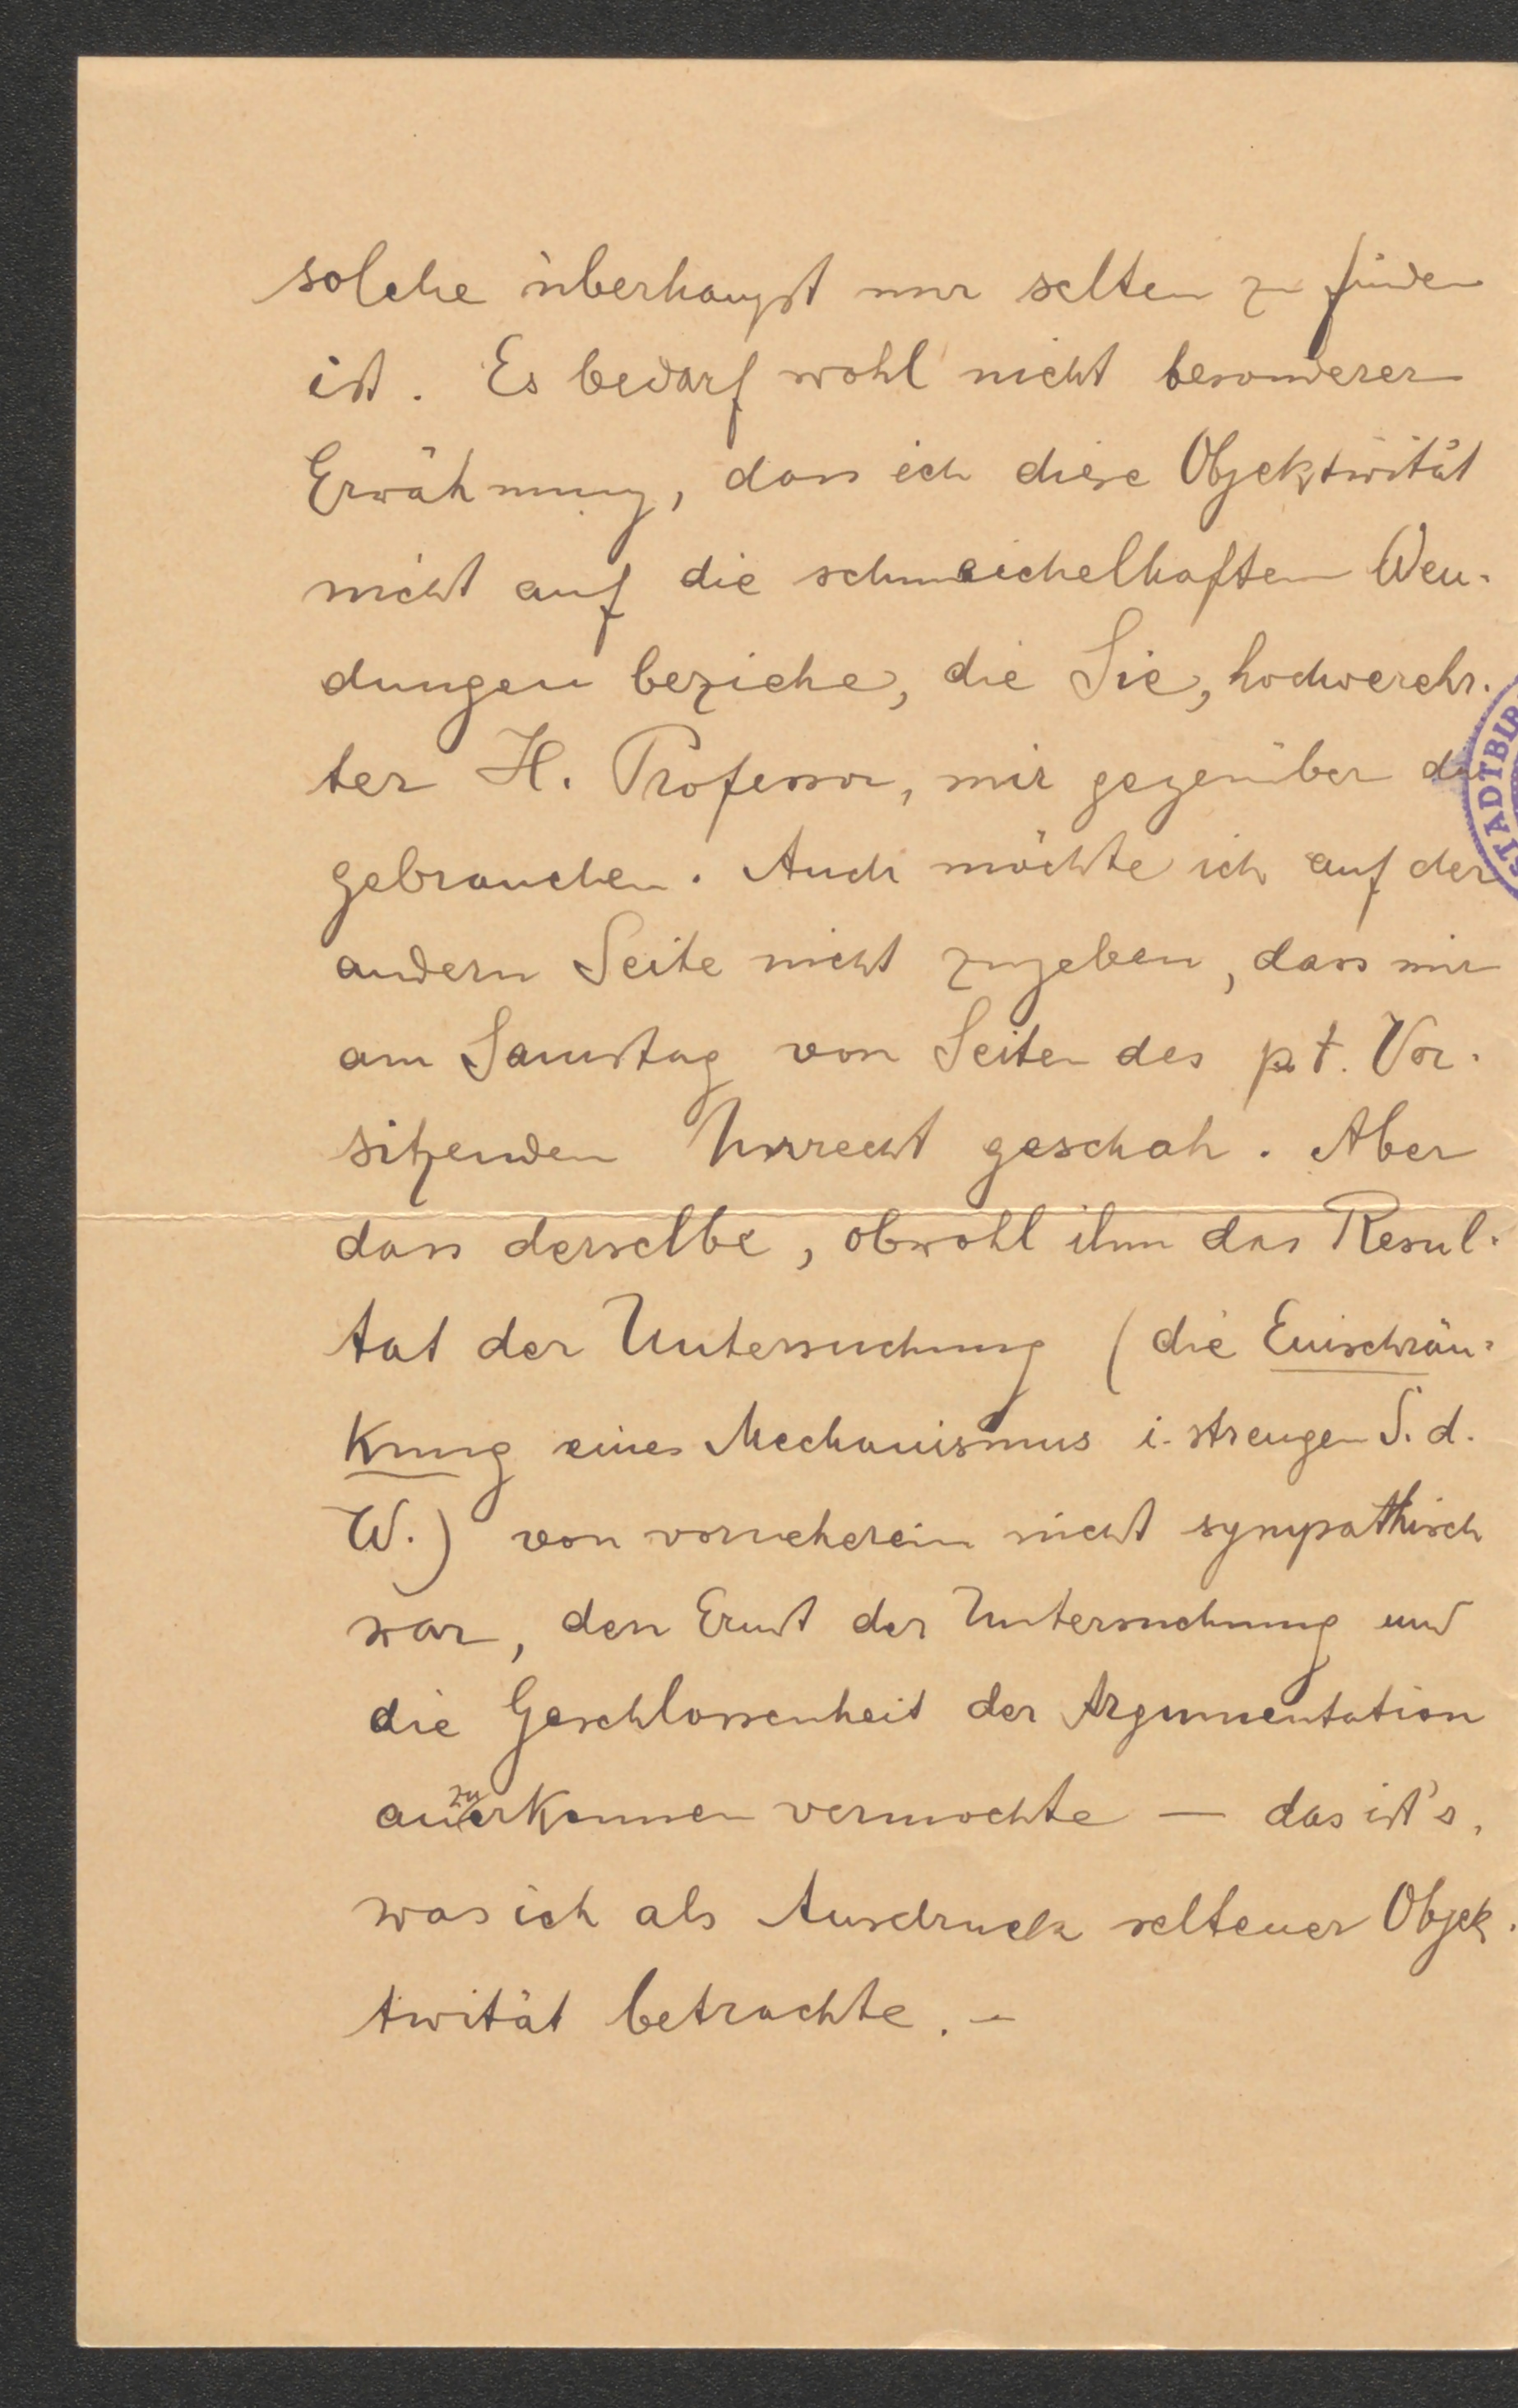 solche überhaupt nur selten zu finden
ist. Es bedarf wohl nicht besonderer
Erwähnung, dass ich diese Objektivität
nicht auf die schmeichelhaften Wen-
dungen beziehe, die Sie, hochverehr-
ter H. Professor, mir gegenüber
gebrauchen. Auch möchte ich auf der
andern Seite nicht zugeben, dass mir
am Samstag von Seiten des p. t. Vor-
sitzenden Unrecht geschah. Aber
dass derselbe, obwohl ihm das Resul-
tat der Untersuchung (die Einschrän-
kung eines Mechanismus i. strengen S. d.
W.) von vorneherein nicht sympathisch
war, den Ernst der Untersuchung und
die Geschlossenheit der Argumentation
anzuerkennen vermochte — das ist's,
was ich als Ausdruck seltener Objek-
tivität betrachte. —
STADTBIB